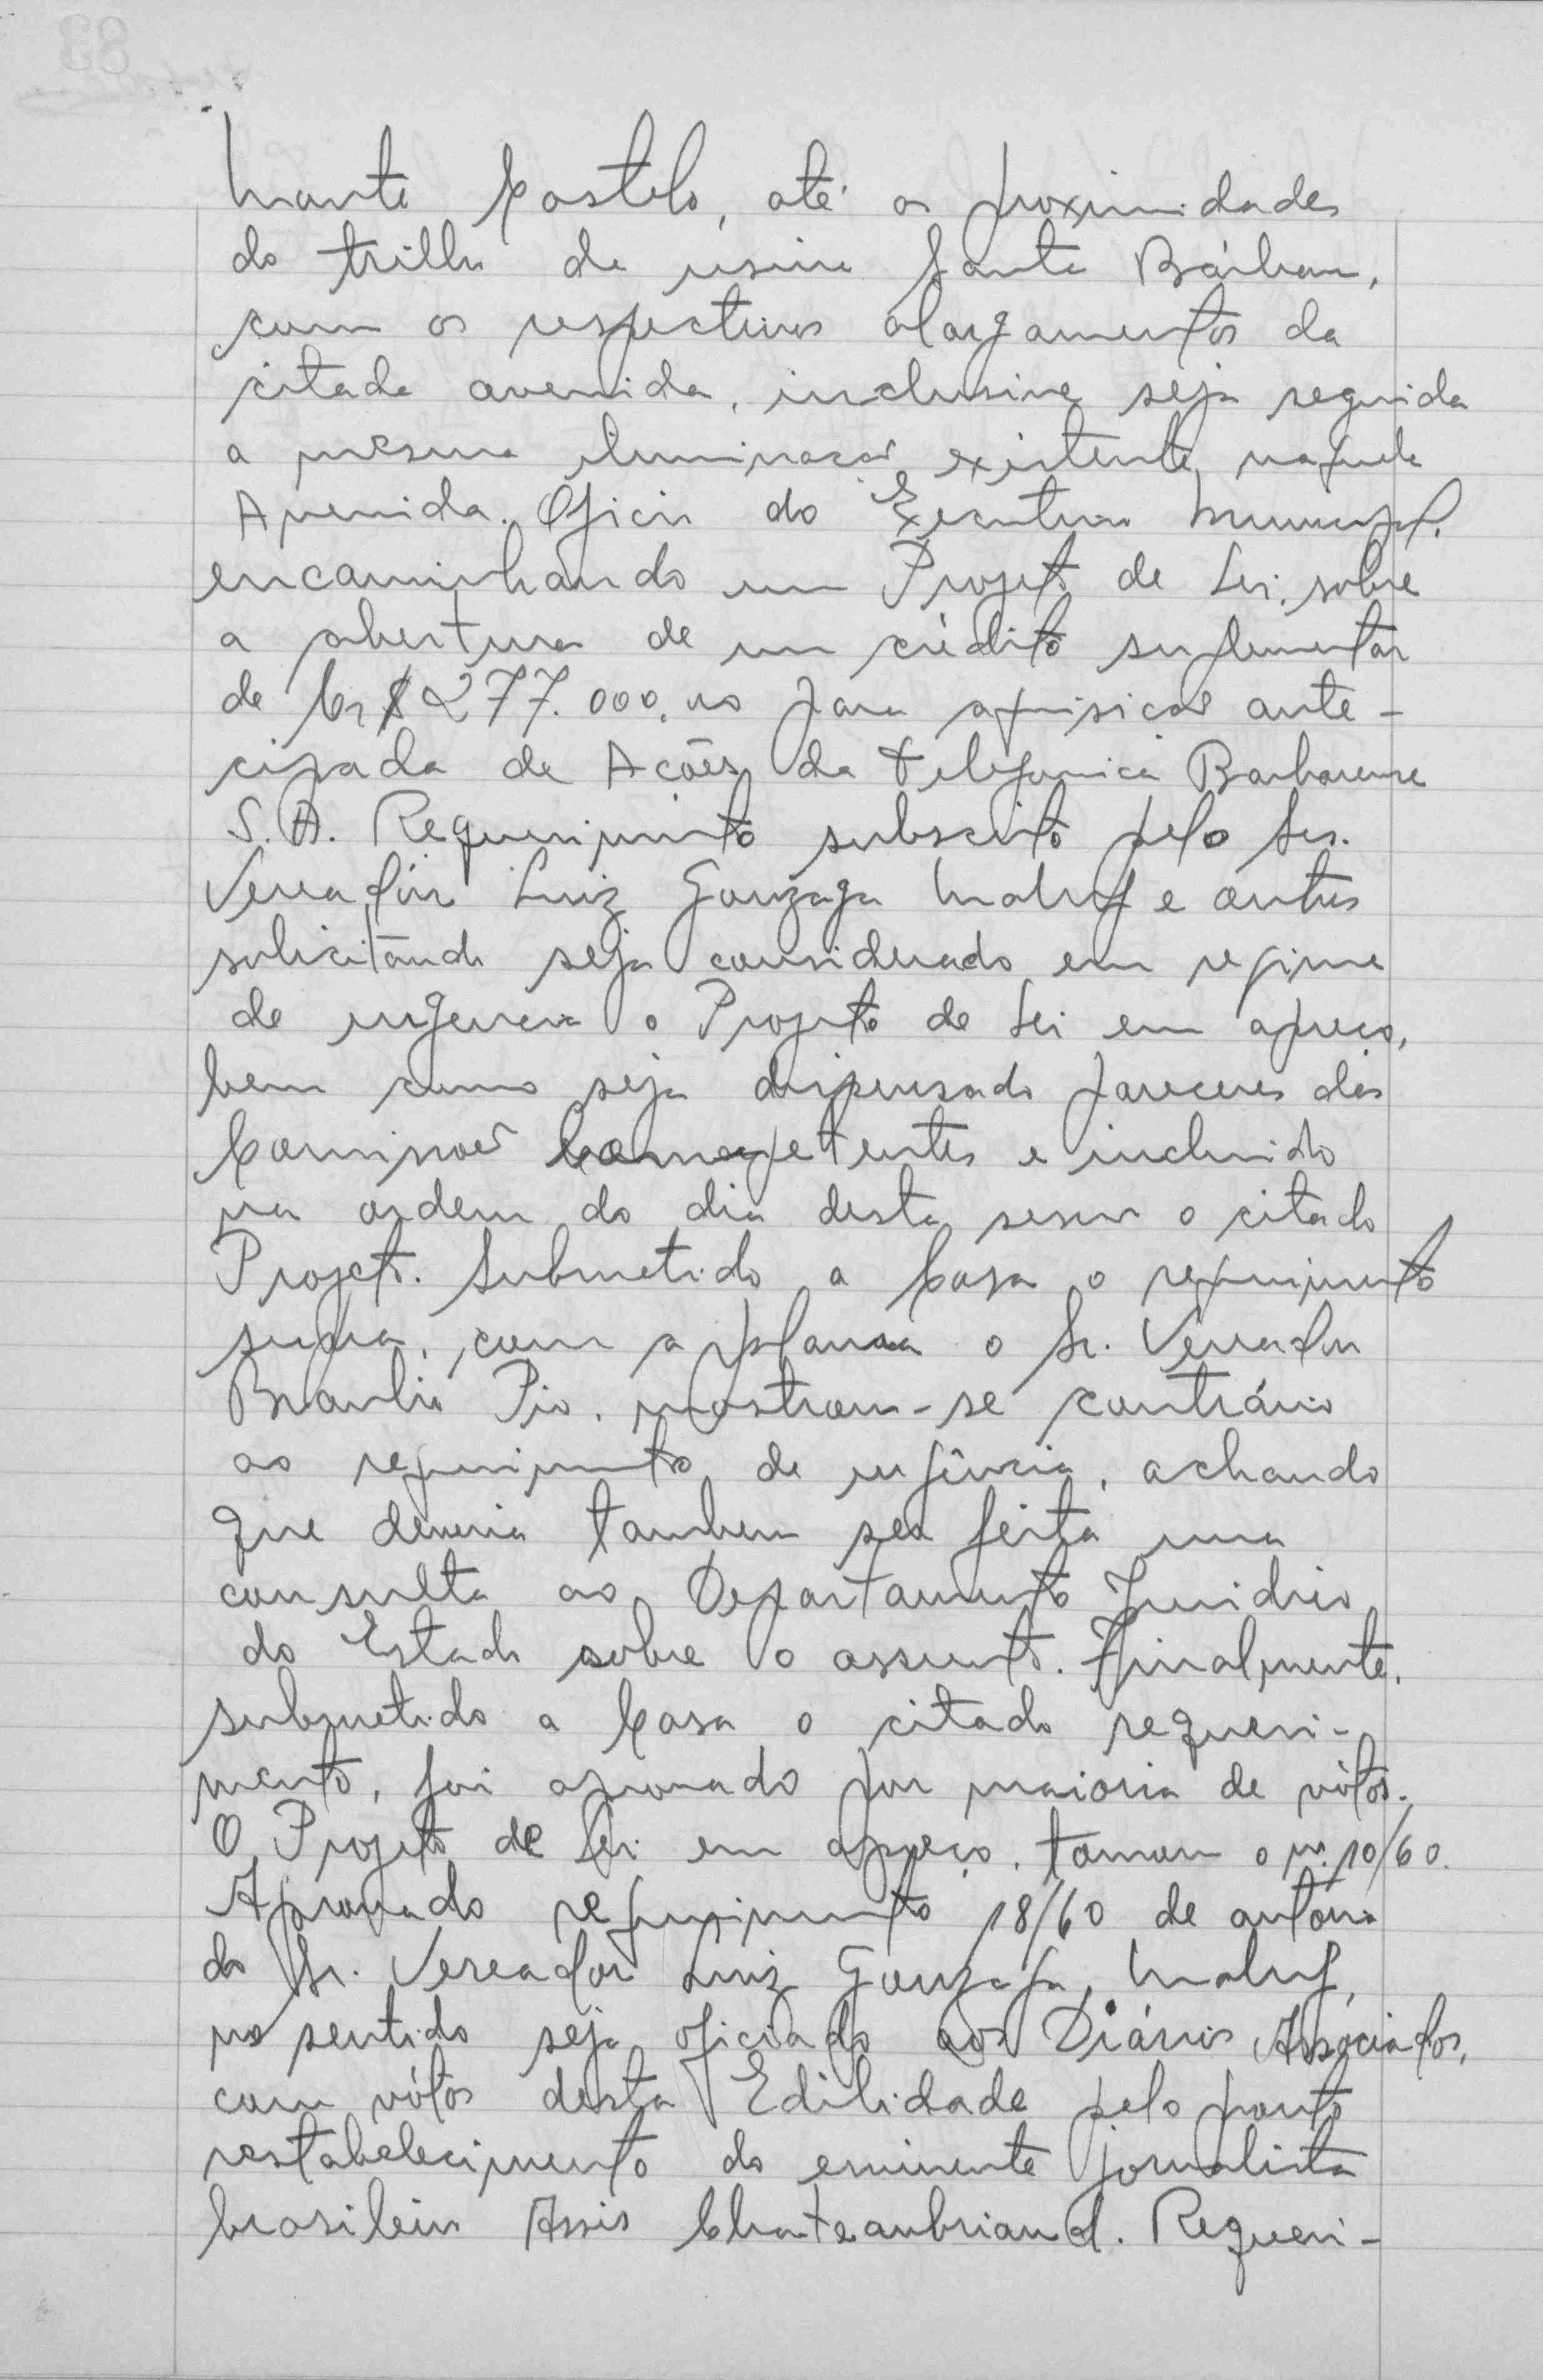 Monte Castelo, até as proximidades
do trilho da usina Santa Bárbara,
com os respectivos alargamentos da
citada avenida, inclusive seja seguida
a mesma iluminação existente naquela
Avenida. Oficio do Executivo Municipal.
encaminhando um Projeto de Lei, sobre
a abertura de um crédito suplementar
de Cr$ 277.000,00 para aquisicão ante-
cipada de Acões da Telefonica Barbarense
S.A. Requerimento subscrito pelo Sr.
Vereador Luiz Gonzaga Maluf e outros
solicitando seja considerado em regime
de urgencia o Projeto de Lei em apreço,
bem como seja dispensado pareceres das
Comissoẽs Competentes e incluido
na ordem do dia desta sessão o citado
Projeto. Submetido a Casa o requerimento
supra, com a palavra o Sr. Vereador
Braulio Pio, mostrou-se contrário
ao requerimento de urgência, achando
que deveria tambem ser feita uma
consulta ao Departamento Juridico
do Estado sobre o assunto. Finalmente,
submetido a Casa o citado requeri-
mento, foi aprovado por maioria de vótos.
O Projeto de Lei em apreço, tomou o nº 10/60.
Aprovado requerimento 18/60 de autória
do Sr. Vereador Luiz Gonzaga Maluf,
no sentido seja oficiado aos Diários Associados,
com vótos desta Edilidade pelo pronto
restabelecimento do eminente jornalista
brasileiro Assis Chateaubriand. Requeri-